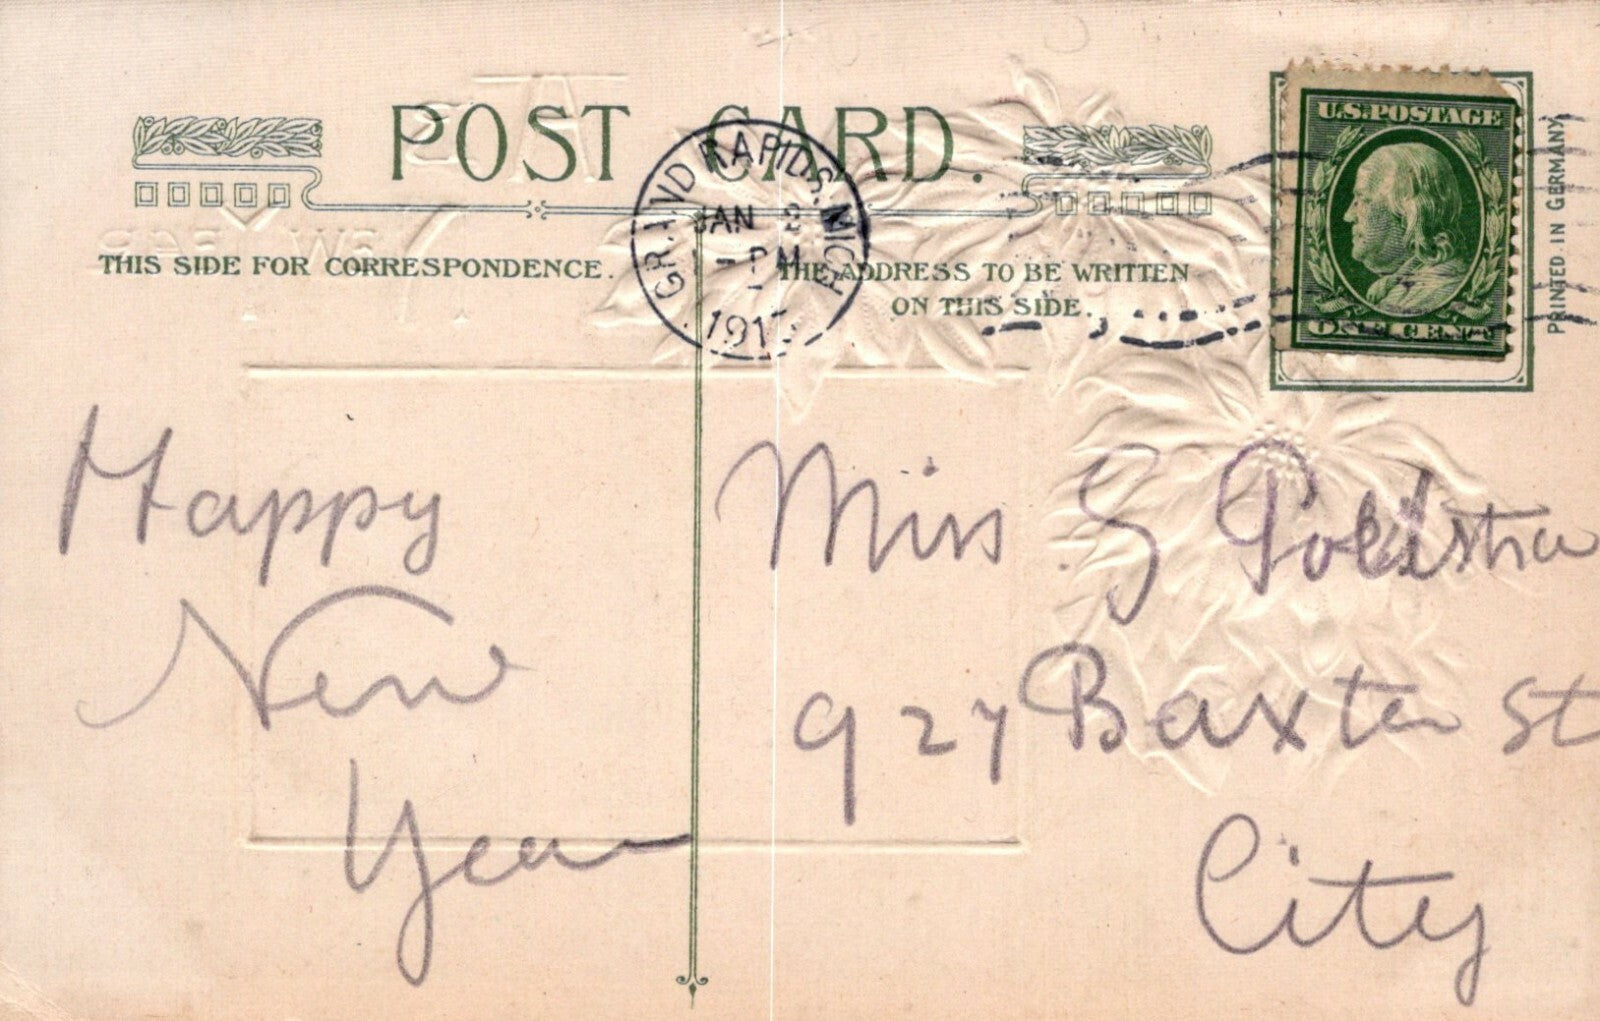 POST CARD.
THIS SIDE FOR CORRESPONDENCE.
THE ADDRESS TO BE WRITTEN
ON THIS SIDE.
GRAND RAPIDS. MICH
JAN 2
PM
U.S. POSTAGE
ONE CENT
PRINTED IN GERMANY
Happy
New
Year
Miss G
927 Baxter St
City